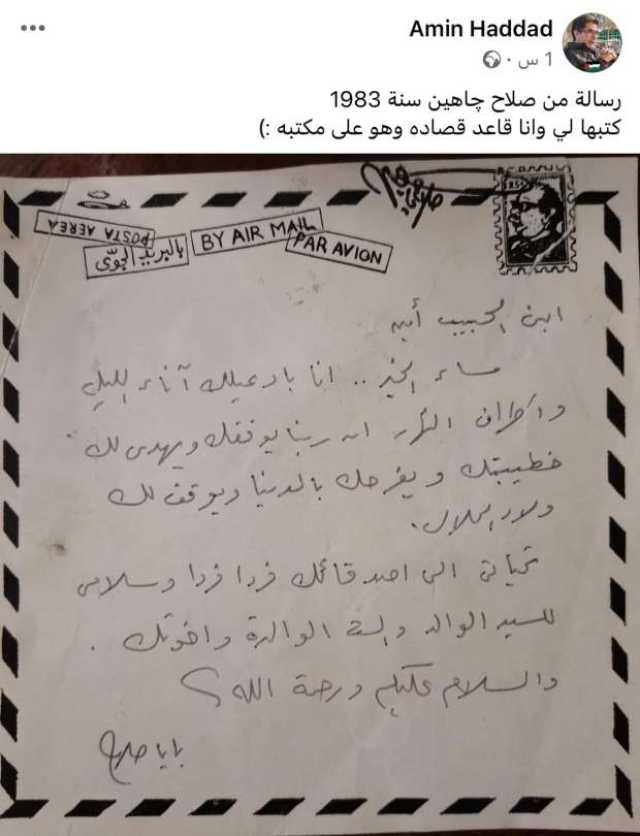 Amin Haddad
1 س
رسالة من صلاح چاهين سنة 1983
كتبها لي وانا قاعد قصاده وهو على مكتبه :)
POSTA AEREA
بالبريد الجوّى
BY AIR MAIL
PAR AVION
صلاح چاهين
ابنى الحبيب أمين
مساء الخير .. انا بادعيلك آناء الليل
واطراف النهار ان ربنا يوفقك ويهدى لك
خطيبتك ويفرحك بالدنيا ويوقف لك
ولاد الحلال.
تحياتى الى اصدقائك فردا فردا وسلامى
للسيد الوالد والست الوالدة واخوتك .
والسلام عليكم ورحمة الله ؟
بابا صلاح